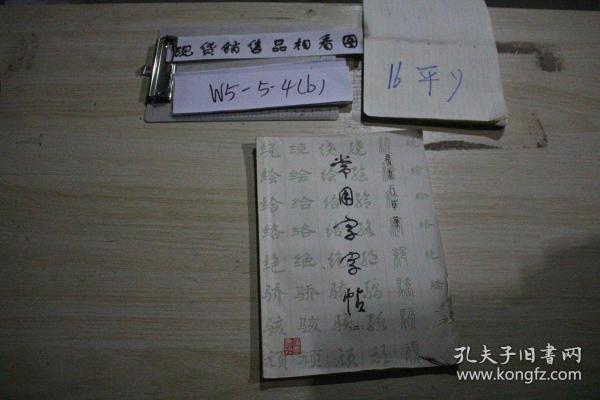 现货销售品相看图
W5-5-4(b)
16平y
常用字字帖
二
绕 绕 绕 绕
绘 绘 绘 绘
给 给 给 给
络 络 络 络
绝 绝 绝 绝
骄 骄 骄 骄
骇 骇 骇 骇
顽 顽 顽 顽
孔夫子旧书网
www.kongfz.com